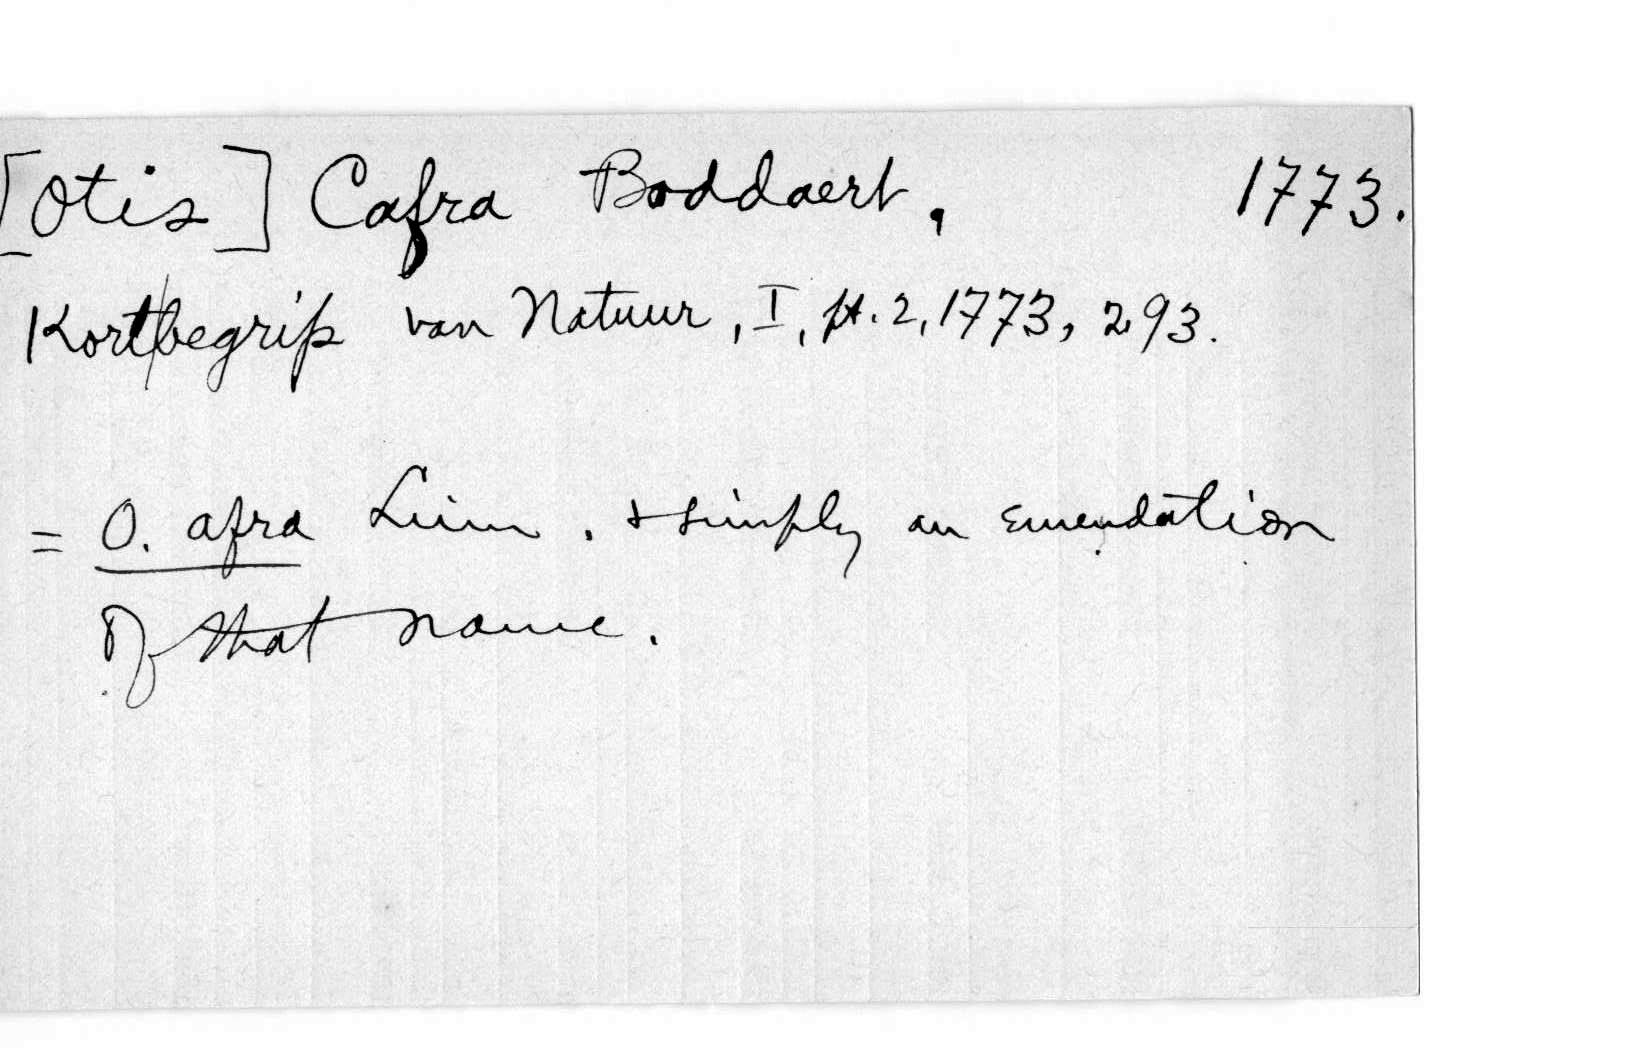 [Otis] Cafra Boddaert, 1773.
Kort begrip van Natuur, I, pt. 2, 1773, 293.
= O. afra Linn. & simply an emendation
of that name.